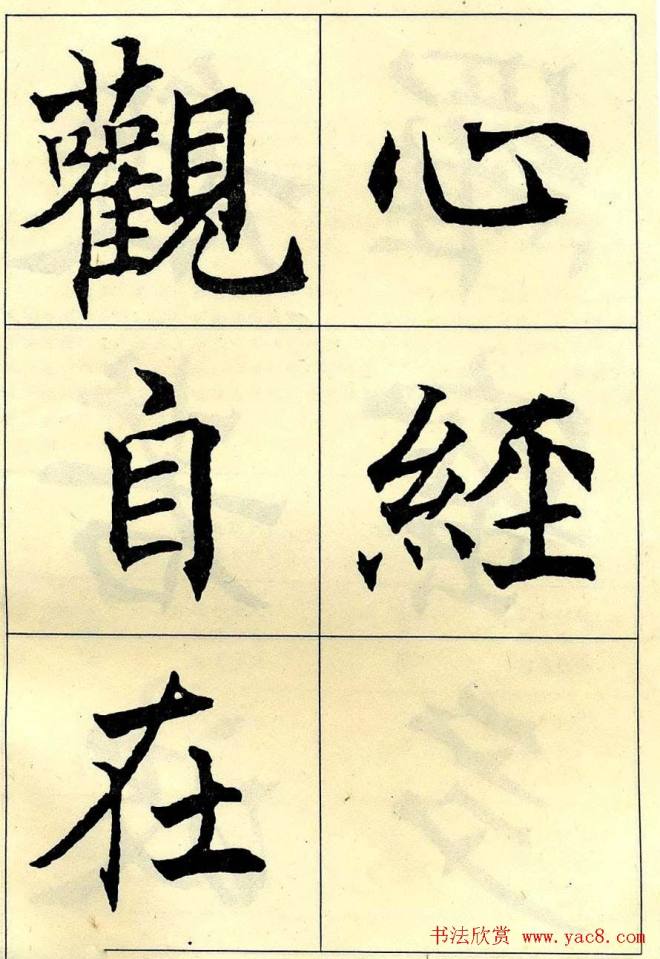 心經
觀自在
书法欣赏 www.yac8.com